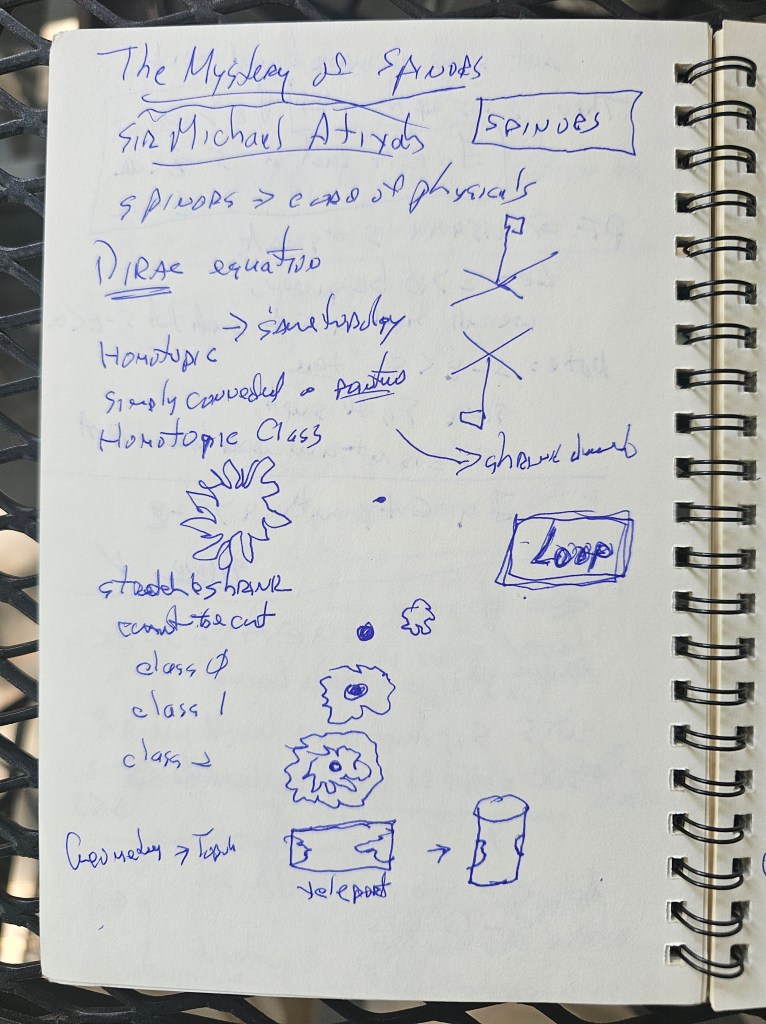 The Mystery of SPINORS
SIR Michael Atiyah
SPINORS
SPINORS → of physicals
DIRAC equation
→ same topology
Homotopic
Simply connected
Homotopic Class
→ shrink down
Loop
stretch & shrink
can't be cut
class 0
class 1
class 2
Geometry →
→
teleport